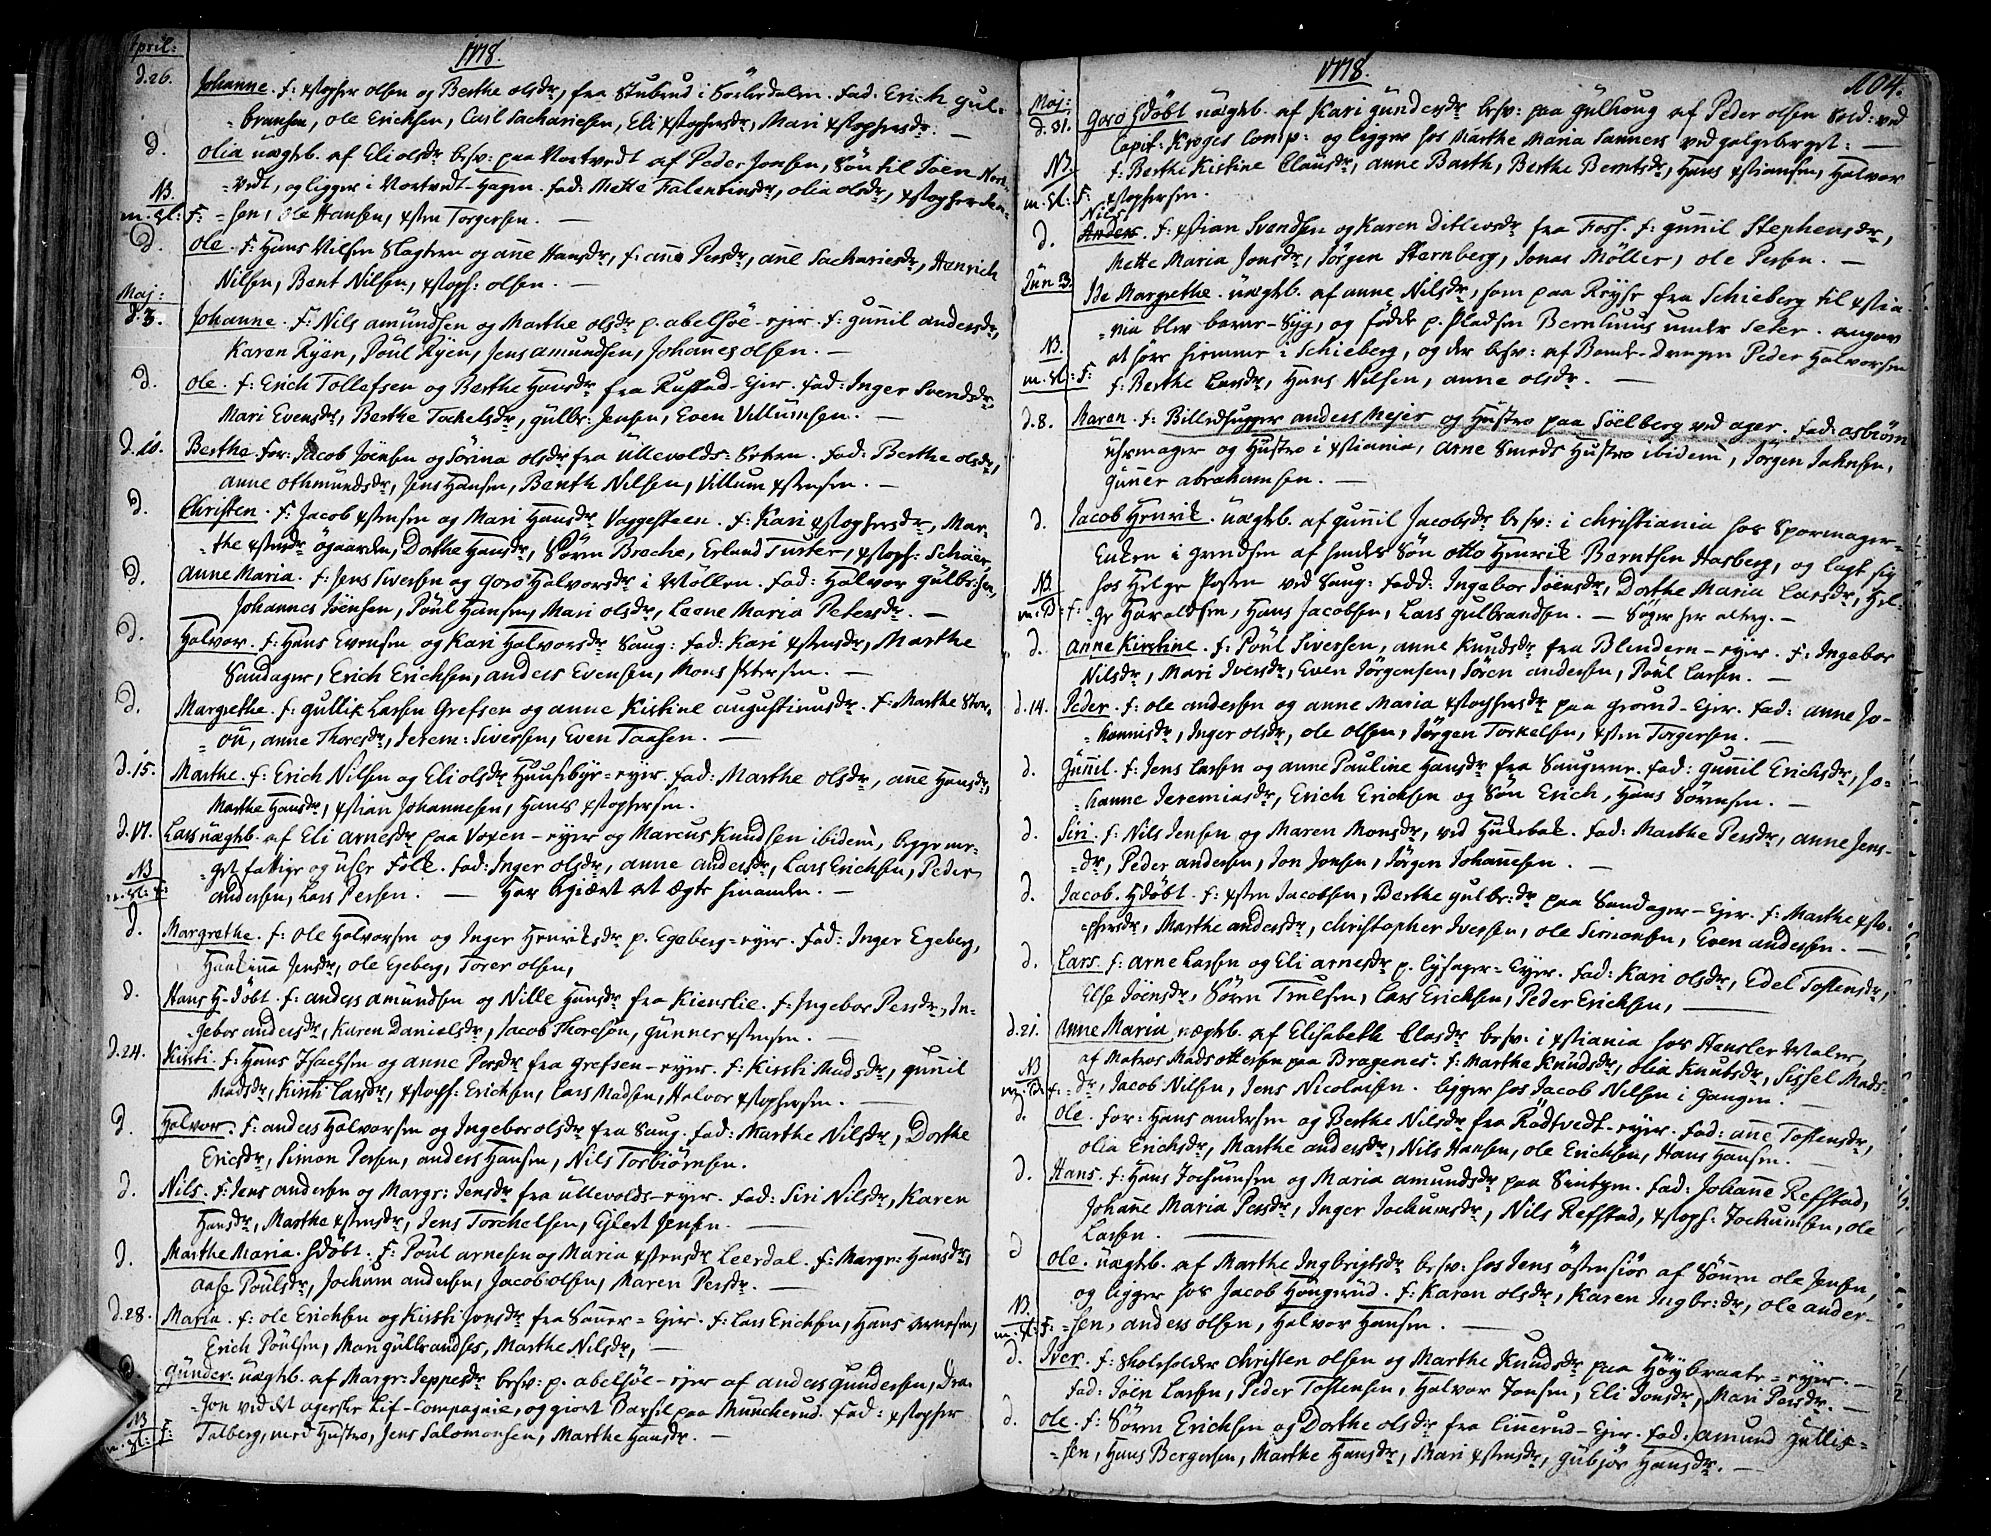 April:
1778.
d.26. Johanne. f: xstopher olsen og Berthe olsdr, fra Stubrud i Sørkedalen. fad: Erich Gul-
bransen, ole Erichsen, Carl Sachariesen, Eli xstophersdr, Mari xstophersdr. —
d. olia uægtb. af Eli olsdr besv: paa Nortvedt af Peder Joensen, Søn til Joen Nort-
NB. vedt, og ligger i Nortvedt-Hagen. fad: Mette Falentinsdr, olia olsdr, xstopher
m. F: sen, ole Hansen, xsten Torgersen. —
d. ole. f: Hans Nilsen Slagteren og ane Hansdr, f: ane Persdr, ane Sachariesdr, Henrich
Nilsen, Bent Nilsen, xstoph: olsen. —
Maj:
d.3. Johanne. f: Nils amundsen og Marthe olsdr p. abelsøe-ejer. f: gunil andersdr,
Karen Ryen, Poul Ryen, Jens amundsen, Johanes olsen. —
d. ole. f: Erich Tollefsen og Berthe Hansdr fra Rustad-Ejer. fad: Inger Svendsdr,
Mari Evensdr, Berthe Tockelsdr, gulbr: Jensen, Even Villumsen. —
d.10. Berthe. for: Jacob Joensen og Sørina olsdr fra Ullevolds-Eieren. fad: Berthe olsdr,
anne othmundsdr, Jens Hansen, Benth Nilsen, Villum xstensen. —
d. Christen. f: Jacob xstensen og Mari Hansdr Vaggesteen. f: Kari xstophersdr, Mar-
the xstensdr øgaarden, Dorthe Hansdr, Søren Brache, Erland Tuster, xstoph: Schaer,
d. Anne Maria. f: Jens Siversen og Goro Halvorsdr i Møllen. fad: Halvor Gulbr:sen,
Johannes Joensen, Poul Hansen, Mari olsdr, Leene Maria Petersdr. —
d. Halvor. f: Hans Evensen og Kari Halvorsdr Saug: fad: Kari xstensdr, Marthe
Sandager, Erich Erichsen, anders Evensen, Mons Petersen. —
d. Margrethe. f: gullik Larsen Grefsen og anne Kistine augustinusdr. f: Marthe Stor-
øn, anne Thoresdr, Jerem: Siversen, Even Taasen. —
d.15. Marthe. f: Erich Nilsen og Eli olsdr Huusebye-eyer. fad: Marthe olsdr, ane Hansdr,
Marthe Hansdr, xstian Johannesen, Hans xstophersen.
d.17. Lars uægtb. af Eli arnesdr paa Voxen-eyer og Marcus Knudsen ibidem, begge me-
NB get fattige og usle Folk. fad: Inger olsdr, anne andersdr, Lars Erichsen, Peder
m. f: andersen, Lars Persen. — Har begiært at ægte hinanden. —
d. Margrethe. f: ole Halvorsen og Inger Henriksdr p. Egeberg-eyer. fad: Inger Egeberg,
Hankina Jensdr, ole Egeberg, Torer olsen,
d. Hans H-døbt. f: anders amundsen og Nille Hansdr fra Kienslie. f: Ingebor Persdr, In-
gebor andersdr, Karen Danielsdr, Jacob Thoresøn, gunner xstensen. —
d.24. Kirsti. f: Hans Isachsen og anne Persdr fra grefsen-eyer. f: Kirsti Madsdr, gunil
Madsdr, Kirsti Larsdr, xstoph: Erichsen, Lars Madsen, Halvor xstophersen. —
d. Halvor. f: anders Halvorsen og Ingebor olsdr fra Saug. fad: Marthe Nilsdr, Dorthe
Ericsdr, Simon Persen, anders Hansen, Nils Torbiørnsen.
d. Nils. f: Jens andersen og Margr: Jensdr fra Ullevolds-eyer. fad: Siri Nilsdr, Karen
Hansdr, Marthe xstensdr, Jens Torchelsen, Eylert Jensen. —
d. Marthe Maria. hdøbt. f: Poul arnesen og Maria xstensdr Leerdal. f: Margr: Hansdr,
aase Poulsdr, Jochum andersen, Jacob olsen, Maren Persdr. —
d.28. Maria. f: ole Erichsen og Kirsti Jonsdr fra Sauer-Ejer. f: Lars Erichsen, Hans arnesen,
Erich Poulsen, Mari Gulbrandses, Marthe Nilsdr, —
Gunder. uægtb. af Margr: Jeppesdr besv: p. abelsøe-ejer af anders gundersen, Dra-
NB gon ved det agerske Lif-Compagnie, og giort Barsel paa Muncherud. fad: xstopher
m. f: Talberg, med Hustro, Jens Salomonsen, Marthe Hansdr. —
1778.
104.
Maj:
d.31. Goro hdøbt uægtb. af Kari gundersdr besv: paa Gulhoug af Peder olsen Sold: ved
Capit: Kroges Comp: og ligger hos Marthe Maria Sanners ved galgeberget: —
NB. f: Berthe Kistine Clausdr, anne Barth, Berthe Berntsdr, Hans xstiansen, Halvor
m. f: xstophersen.
Nils
d. Anders. f: xstian Svendsen og Karen Ditlevsdr fra Foss. f: gunil Stephensdr,
Mette Maria Jonsdr, Jørgen Sternberg, Jonas Møller, ole Persen. —
Jun 3. Ide Margrethe. uægtb. af anne Nilsdr, som paa Reyse fra Schieberg til xstia-
nia blev barne-Syg, og fødde p. Pladsen Bernhuus under Seter. angav
NB. at høre hiemme i Schieberg, og der besv: af Bonde-Drengen Peder Halvorsen
m. f: f: Berthe Larsdr, Hans Nilsen, anne olsdr. —
d.8. Maren. f: Billedhugger anders Mejer og Hustro paa Søelberg ved ager. fad: asbiørn
Uhrmager og Hustro i xstiania, Arne Smeds Hustro ibidem, Jørgen Jahnsen,
gunner abrahamsen. —
d. Jacob Henrik. uægtb. af gunil Jacobsdr besv: i christiania hos Spormager-
Enken i grendsen af hendes Søn otto Henrik Berntsen Hasberg, og lagt sig
NB hos Helge Posten ved Saug: fadd: Ingebor Joensdr, Dorthe Maria Larsdr, Hel-
m. D: f: ge Haraldsen, Hans Jacobsen, Lars gulbrandsen. —
d. Anne Kirstine. f: Poul Siversen, anne Knudsdr fra Blindern-eyer. f: Ingebor
Nilsdr, Mari Iversdr, Even Jørgensen, Søren andersen, Poul Larsen. —
d.14. Peder. f: ole andersen og anne Maria xstophersdr paa grønd-Ejer. fad: anne Jo-
hannisdr, Inger olsdr, ole olsen, Jørgen Torkelsen, xsten Torgersen. —
d. Gunil. f: Jens Larsen og anne Pauline Hansdr fra Saugerne. fad: gunil Erichsdr, Jo-
hanne Jeremiasdr, Erich Erichsen og Søn Erich, Hans Sørensen. —
d. Siri. f: Nils Jensen og Maren Monsdr, ved Hukebak. fad: Marthe Persdr, anne Jens-
dr, Peder andersen, Jon Jonsen, Jørgen Johanesen. —
d. Jacob. Hdøbt. f: xsten Jacobsen, Berthe gulbr:dr paa Sandager-Ejer. f: Marthe xsto-
phersdr, Marthe andersdr, christopher Iversen, ole Simonsen, Even andersen. —
d. Lars. f: arne Larsen og Eli arnesdr p. Lysager-Eyer. fad: Kari olsdr, Edel Tostensdr,
Else Joensdr, Søren Truelsen, Lars Erichsen, Peder Erichsen, —
d.21. Anne Maria uægtb. af Elisabeth Clasdr besv: i xstiania hos Hensler Maler,
NB af Matros Mads ottersen paa Bragenes. f: Marthe Knudsdr, olia Knutsdr, Sissel Mads-
f: dr, Jacob Nilsen, Jens Nicolaisen. ligger hos Jacob Nilsen i Gangen. —
d. ole. for: Hans andersen og Berthe Nilsdr fra Rødtvedt-eyer. fad: ane Tostensdr,
olia Erichsdr, Marthe andersdr, Nils Hansen, ole Erichsen, Hans Hansen. —
d. Hans. f: Hans Jochumsen og Maria amundsdr paa Sinsyen. fad: Johane Refstad,
Johane Maria Persdr, Inger Jochumsdr, Nils Refstad, xstoph: Jochumsen, ole
Larsen. —
d. ole. uægtb. af Marthe Ingbrigtsdr besv: hos Jens østensiøe af Sønen ole Jensen,
NB. og ligger hos Jacob Hongerud. f: Karen olsdr, Karen Ingbr:dr, ole ander-
m. f: sen, anders olsen, Halvor Hansen. —
d. Iver. f: Skoleholder christen olsen og Marthe Knudsdr paa Høybraate-eyer. —
fad: Joen Larsen, Peder Tostensen, Halvor Jonsen, Eli Jonsdr, Mari Persdr. —
d. ole. f: Søren Erichsen og Dorthe olsdr fra Linnerud-Ejer. fad: amund gullik-
sen, Hans Bergersen, Marthe Hansdr, Mari xstensdr, gubjør Hansdr. —